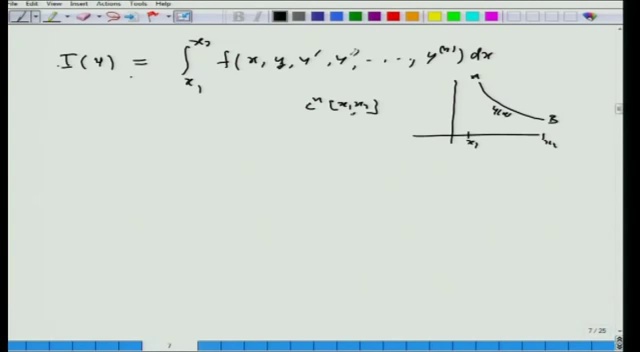 File Edit View Insert Actions Tools Help
I(y) = ∫_{x₁}^{x₂} f(x, y, y', y'', ...., y⁽ⁿ⁾) dx
cⁿ [x₁, x₂]
A
y(x)
B
x₁
x₂
B I
7 / 25
7